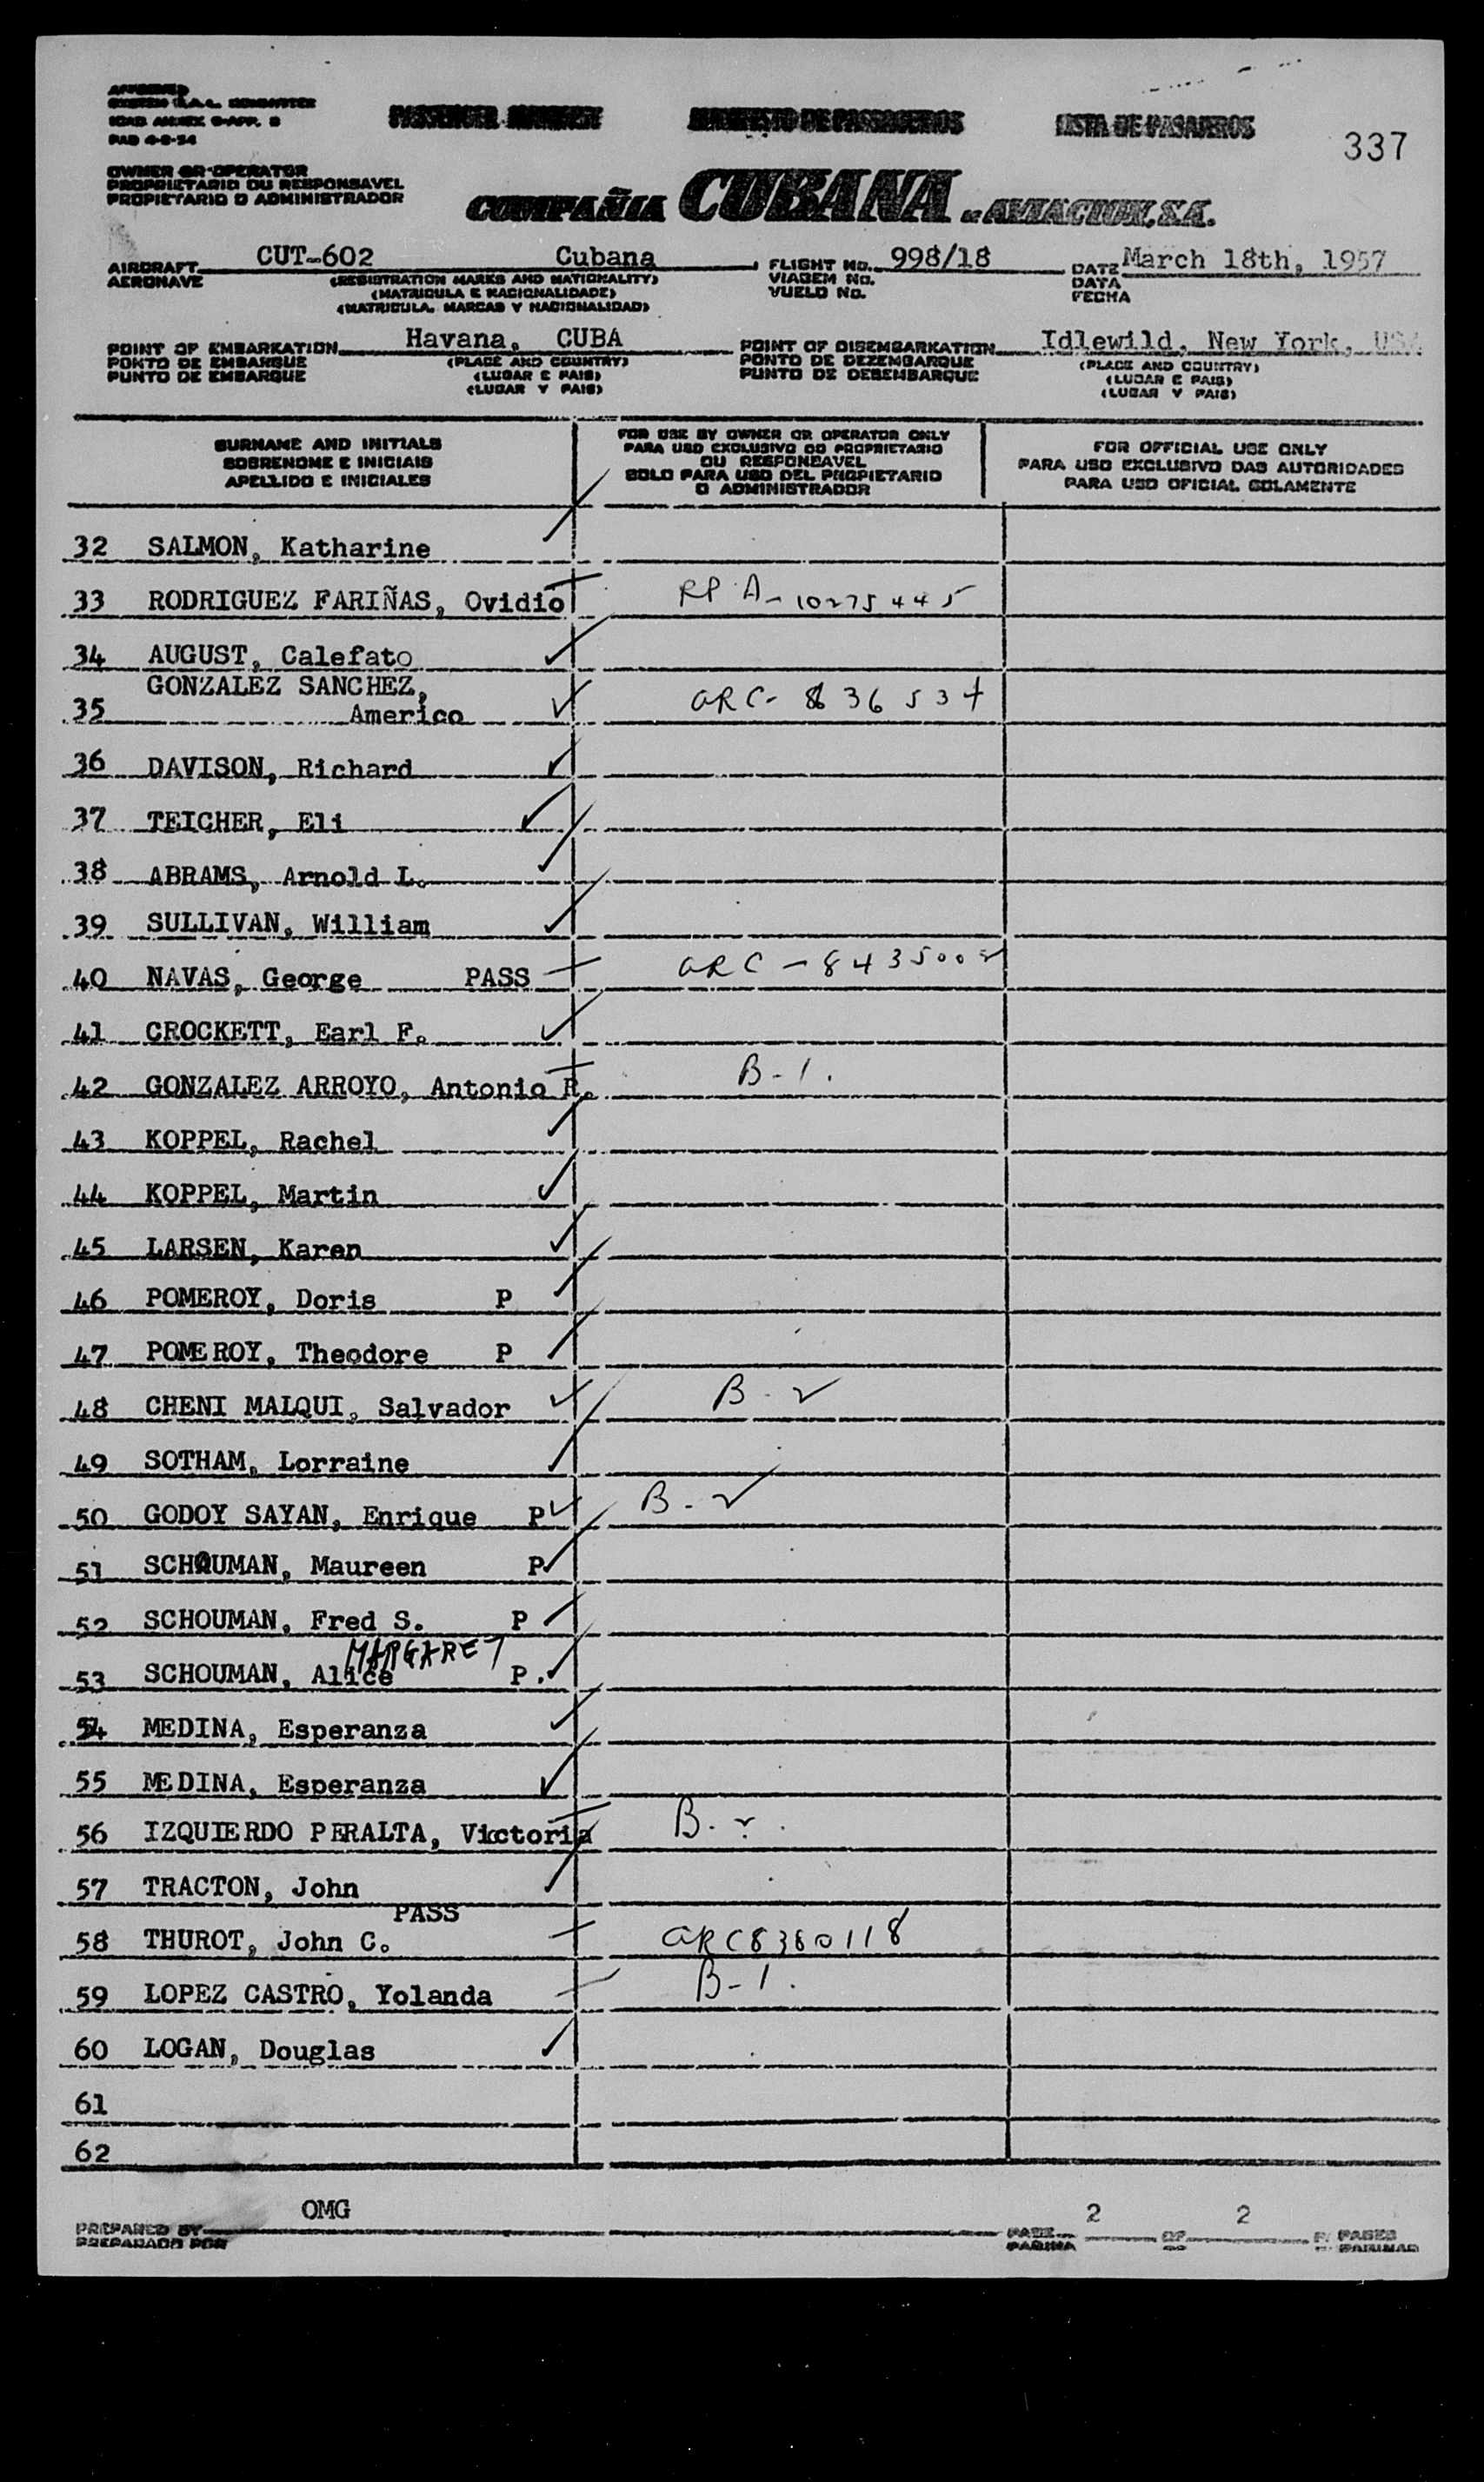 APPROVED
PASSENGER MANIFEST MANIFESTO DE PASSAGEIROS LISTA DE PASAJEROS
ICAO ANNEX 9-APP. 2
337
OWNER OR OPERATOR
PROPRIETARIO OU RESPONSAVEL
PROPIETARIO O ADMINISTRADOR
COMPAÑIA CUBANA DE AVIACION, S.A.
AIRCRAFT CUT-602 Cubana FLIGHT No. 998/18 DATE March 18th, 1957
AERONAVE (REGISTRATION MARKS AND NATIONALITY) VIAGEM No. DATA
(MATRICULA E NACIONALIDADE) VUELO No. FECHA
(MATRICULA, MARCAS Y NACIONALIDAD)
POINT OF EMBARKATION Havana, CUBA POINT OF DISEMBARKATION Idlewild, New York, USA
PONTO DE EMBARQUE (PLACE AND COUNTRY) PONTO DE DEZEMBARQUE (PLACE AND COUNTRY)
PUNTO DE EMBARQUE (LUGAR E PAIS) PUNTO DE DESEMBARQUE (LUGAR E PAIS)
(LUGAR Y PAIS) (LUGAR Y PAIS)
SURNAME AND INITIALS
SOBRENOME E INICIAIS
APELLIDO E INICIALES
FOR USE BY OWNER OR OPERATOR ONLY
PARA USO EXCLUSIVO DO PROPRIETARIO
OU RESPONSAVEL
SOLO PARA USO DEL PROPIETARIO
O ADMINISTRADOR
FOR OFFICIAL USE ONLY
PARA USO EXCLUSIVO DAS AUTORIDADES
PARA USO OFICIAL SOLAMENTE
32 SALMON, Katharine
33 RODRIGUEZ FARIÑAS, Ovidio RP A-10275445
34 AUGUST, Calefato
GONZALEZ SANCHEZ,
35 Americo ARC-
36 DAVISON, Richard
37 TEICHER, Eli
38 ABRAMS, Arnold L.
39 SULLIVAN, William
40 NAVAS, George PASS ARC-8435002
41 CROCKETT, Earl F.
42 GONZALEZ ARROYO, Antonio R. B-1.
43 KOPPEL, Rachel
44 KOPPEL, Martin
45 LARSEN, Karen
46 POMEROY, Doris P
47 POMEROY, Theodore P
48 CHENI MALQUI, Salvador B-2
49 SOTHAM, Lorraine
50 GODOY SAYAN, Enrique P B-2
51 SCHOUMAN, Maureen P
52 SCHOUMAN, Fred S. P
MARGARET
53 SCHOUMAN, Alice P.
54 MEDINA, Esperanza
55 MEDINA, Esperanza
56 IZQUIERDO PERALTA, Victoria B-2.
57 TRACTON, John
PASS
58 THUROT, John C. ARC8380118
59 LOPEZ CASTRO, Yolanda B-1.
60 LOGAN, Douglas
61
62
PREPARED BY OMG PAGE 2 OF 2 PAGES
PREPARADO POR PAGINA PAGINAS